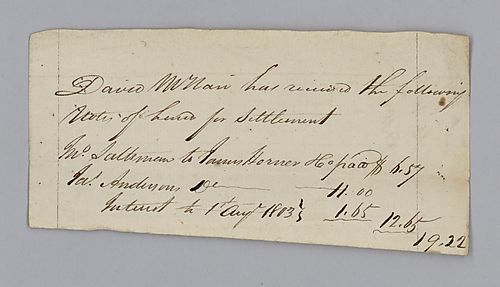 David McNair has received the following
Notes of hand for Settlement
Mc. to James $ 6.57
Jas. Andersons Do 11.00
Interest to 1st Augt 1803 1.65 12.65
19.22